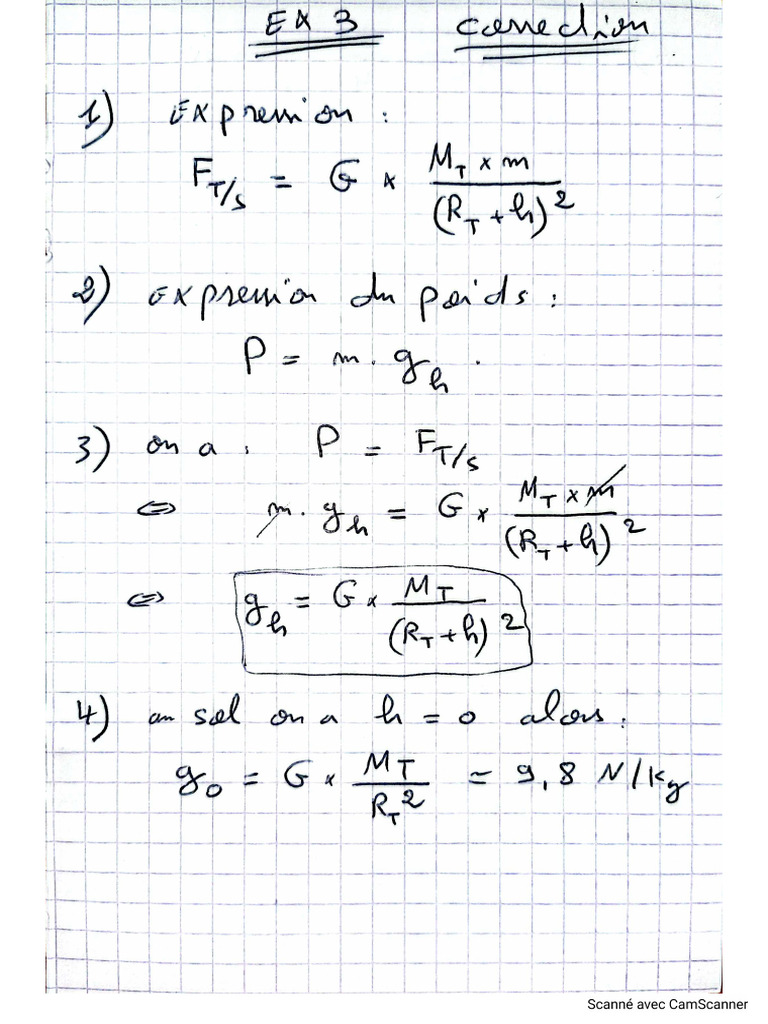 EX 3 correction
1) Expression :
F_{T/s} = G × \frac{M_T × m}{(R_T + h)^2}
2) expression du poids :
P = m . g_h .
3) on a : P = F_{T/s}
⇔ m . g_h = G × \frac{M_T × m}{(R_T + h)^2}
⇔ g_h = G × \frac{M_T}{(R_T + h)^2}
4) au sol on a h = 0 alors :
g_0 = G × \frac{M_T}{R_T^2} = 9,8 N/kg
Scanné avec CamScanner